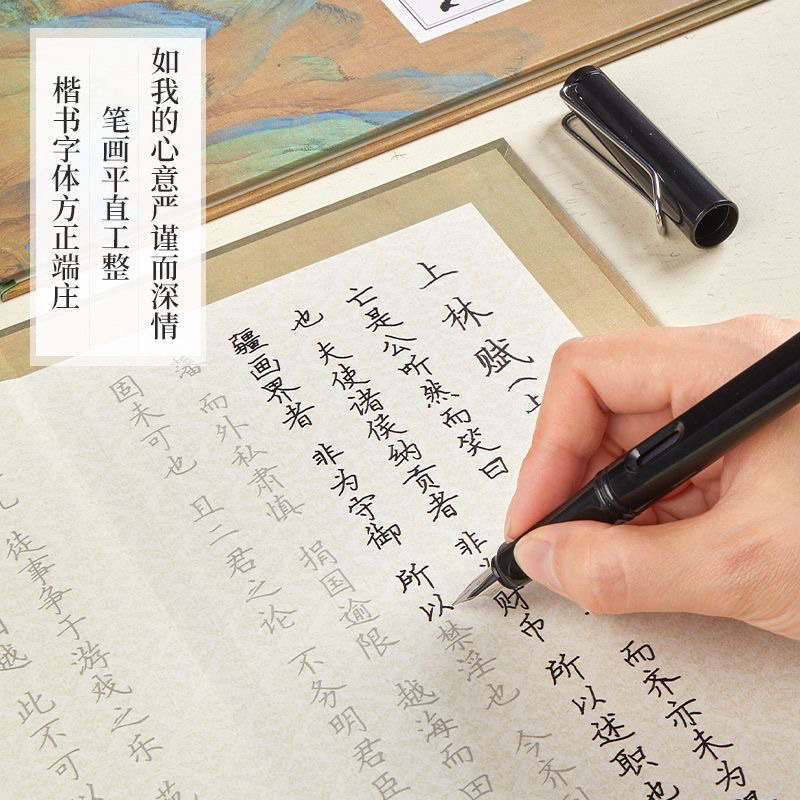 如我的心意严谨而深情
笔画平直工整
楷书字体方正端庄
上林赋（上
亡是公听然而笑曰 而齐亦未为
也 夫使诸侯纳贡者 非为财币 所以述职也
疆画界者 非为守御 所以禁淫也 今齐
藩 而外私肃慎 捐国逾限 越海而田
固未可也 且二君之论 不务明君臣
徒事争于游戏之乐 苑
越 此不可以